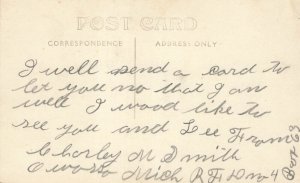 POST CARD
CORRESPONDENCE
ADDRESS ONLY
I well send a card to
let you no that I am
well I wood like to
see you and Lee From
Charley M Smith
Owosso Mich R F D no 4
Box 63